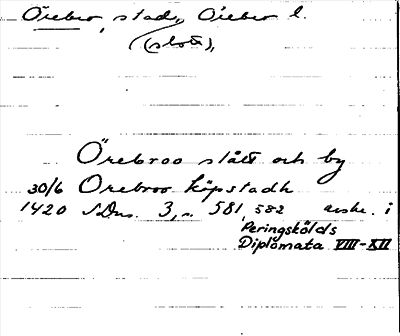 Örebro, stad, Örebro l.
(slott),
Örebroo slått och by
30/6 Örebroo köpstadh
1420 SDns. 3, s. 581, 582 avskr. i
Peringskölds
Diplomata VIII-XII